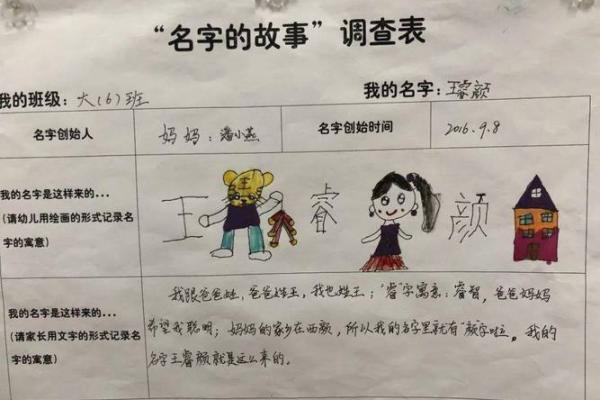 “名字的故事”调查表
我的班级：大（6）班
我的名字：王睿颜
名字创始人
妈妈：潘小燕
名字创始时间
2016.9.8
我的名字是这样来的...
（请幼儿用绘画的形式记录名
字的寓意）
王 睿 颜
王
我的名字是这样来的...
（请家长用文字的形式记录名
字的寓意）
我跟爸爸姓，爸爸姓王，我也姓王；“睿”字寓意：睿智，爸爸妈妈
希望我聪明；妈妈的家乡在西颜，所以我的名字里就有“颜”字啦。我的
名字王睿颜就是这么来的。